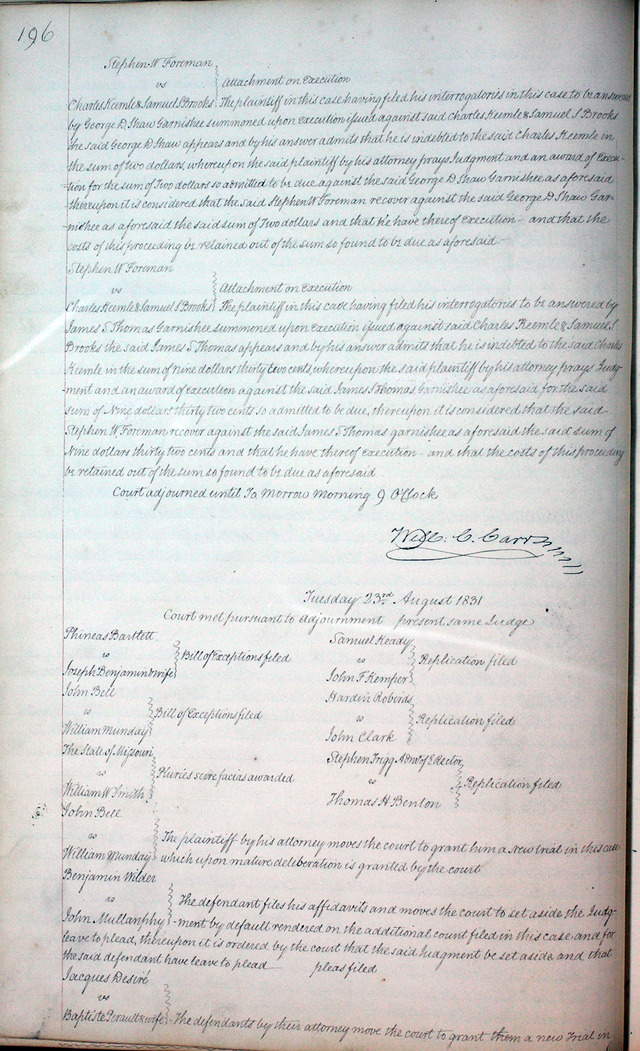 196
Stephen W Foreman
vs } Attachment on Execution
Charles Keemle & Samuel S Brooks } The plaintiff in this case having filed his interrogatories in this case to be answered
by George D. Shaw Garnishee summoned upon Execution issued against said Charles Keemle & Samuel S Brooks
the said George D. Shaw appears and by his answer admits that he is indebted to the said Charles Keemle in
the sum of two dollars, whereupon the said plaintiff by his attorney prays Judgment and an award of Execu-
tion for the sum of Two dollars so admitted to be due against the said George D. Shaw Garnishee as aforesaid
thereupon it is considered that the said Stephen W Foreman recover against the said George D. Shaw Gar-
nishee as aforesaid the said sum of Two dollars and that he have thereof execution - and that the
costs of this proceeding be retained out of the sum so found to be due as aforesaid.
Stephen W Foreman
vs } Attachment on Execution
Charles Keemle & Samuel S Brooks } The plaintiff in this case having filed his interrogatories to be answered by
James S Thomas Garnishee summoned upon Execution issued against said Charles Keemle & Samuel S
Brooks the said James S Thomas appears and by his answer admits that he is indebted to the said Charles
Keemle in the sum of nine dollars thirty two cents whereupon the said plaintiff by his attorney prays Judg-
ment and an award of execution against the said James S Thomas Garnishee as aforesaid for the said
sum of Nine dollars thirty two cents so admitted to be due, thereupon it is considered that the said
Stephen W Foreman recover against the said James S Thomas garnishee as aforesaid the said sum of
Nine dollars thirty two cents and that he have thereof execution - and that the costs of this proceeding
be retained out of the sum so found to be due as aforesaid
Court adjourned until To Morrow Morning 9 O'Clock
Will: C. Carr
Tuesday 23rd August 1831
Court met pursuant to adjournment present same Judge
Phineas Bartlett
vs } Bill of Exceptions filed
Joseph Benjamin & wife
John Bell
vs } Bill of Exceptions filed
William Munday
The State of Missouri
vs } Pluries scire facias awarded
William W Smith
Samuel Keady
vs } Replication filed
John F Kemper
Hardin Robirds
vs } Replication filed
John Clark
Stephen Trigg Admr of E Rector
vs } Replication filed
Thomas H Benton
John Bell
vs } The plaintiff by his attorney moves the court to grant him a New trial in this case
William Munday } which upon mature deliberation is granted by the court
Benjamin Wilder
vs } The defendant files his affidavits and moves the court to set aside the Judg-
John Mullanphy } ment by default rendered on the additional court filed in this case and for
leave to plead, thereupon it is ordered by the court that the said Judgment be set aside and that
the said defendant have leave to plead pleas filed
Jacques Desiré
vs
Baptiste Perault & wife } The defendants by their attorney move the court to grant them a new Trial in